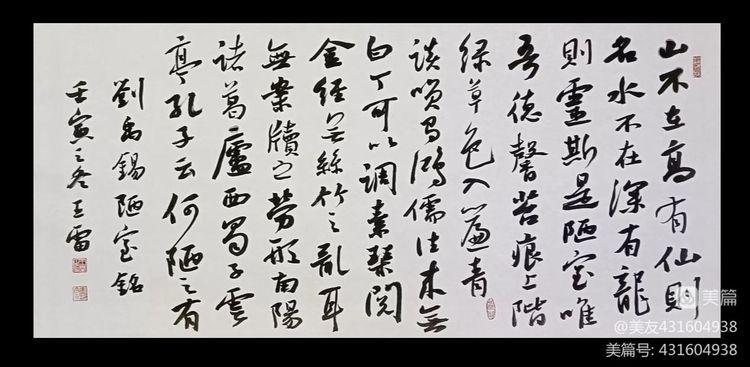 山不在高有仙則
名水不在深有龍
則靈斯是陋室唯
吾德馨苔痕上階
緑草色入簾青
談咲有鴻儒往来無
白丁可以調素琴閲
金經無絲竹之亂耳
無案牘之勞形南陽
諸葛廬西蜀子雲
亭孔子云何陋之有
劉禹錫陋室銘
壬寅之冬王雷
美篇
@美友431604938
美篇号: 431604938